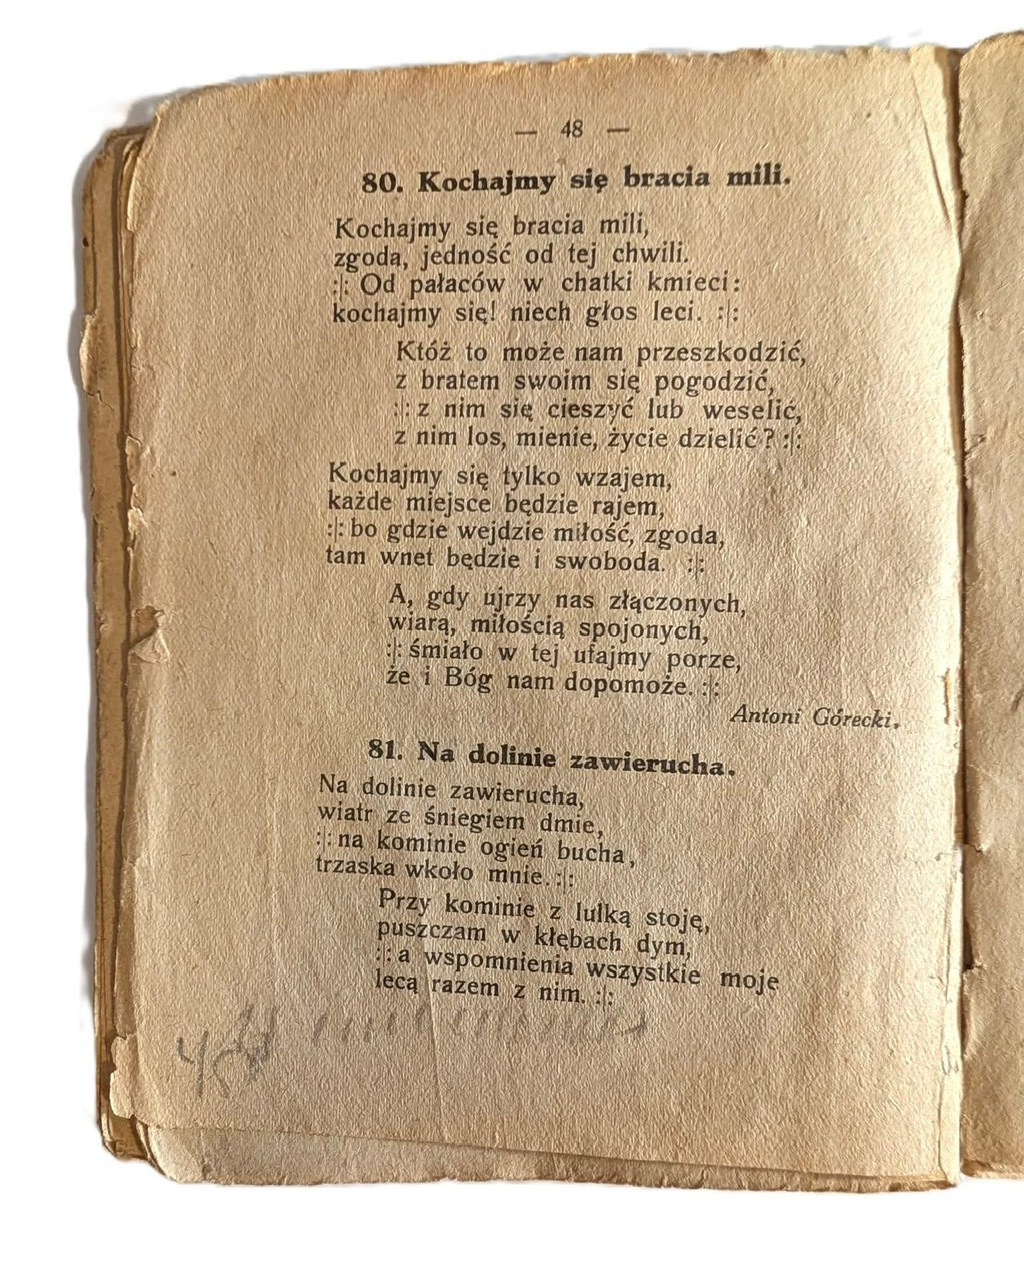 — 48 —
80. Kochajmy się bracia mili.
Kochajmy się bracia mili,
zgoda, jedność od tej chwili.
:|: Od pałaców w chatki kmieci:
kochajmy się! niech głos leci. :|:
Któż to może nam przeszkodzić,
z bratem swoim się pogodzić,
:|: z nim się cieszyć lub weselić,
z nim los, mienie, życie dzielić? :|:
Kochajmy się tylko wzajem,
każde miejsce będzie rajem,
:|: bo gdzie wejdzie miłość, zgoda,
tam wnet będzie i swoboda. :|:
A, gdy ujrzy nas złączonych,
wiarą, miłością spojonych,
:|: śmiało w tej ufajmy porze,
że i Bóg nam dopomoże. :|:
Antoni Górecki.
81. Na dolinie zawierucha.
Na dolinie zawierucha,
wiatr ze śniegiem dmie,
:|: na kominie ogień bucha,
trzaska wkoło mnie. :|:
Przy kominie z lulką stoję,
puszczam w kłębach dym,
:|: a wspomnienia wszystkie moje
lecą razem z nim. :|: